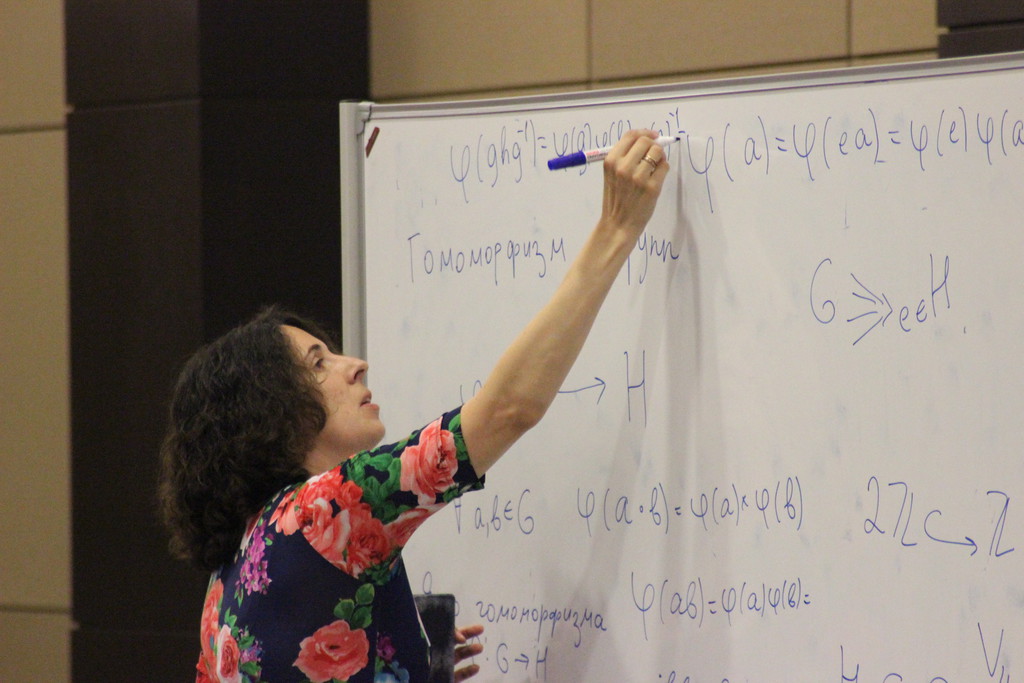 φ(ghg⁻¹)=φ(g)φ(h) )⁻¹ φ(a)=φ(ea)=φ(e)φ(a
Гомоморфизм рупп
G e∈H
→ H
∀a,b∈G φ(a∘b)=φ(a)×φ(b) 2ℤ ↪ ℤ
гомоморфизма φ(ab)=φ(a)φ(b)=
G→H